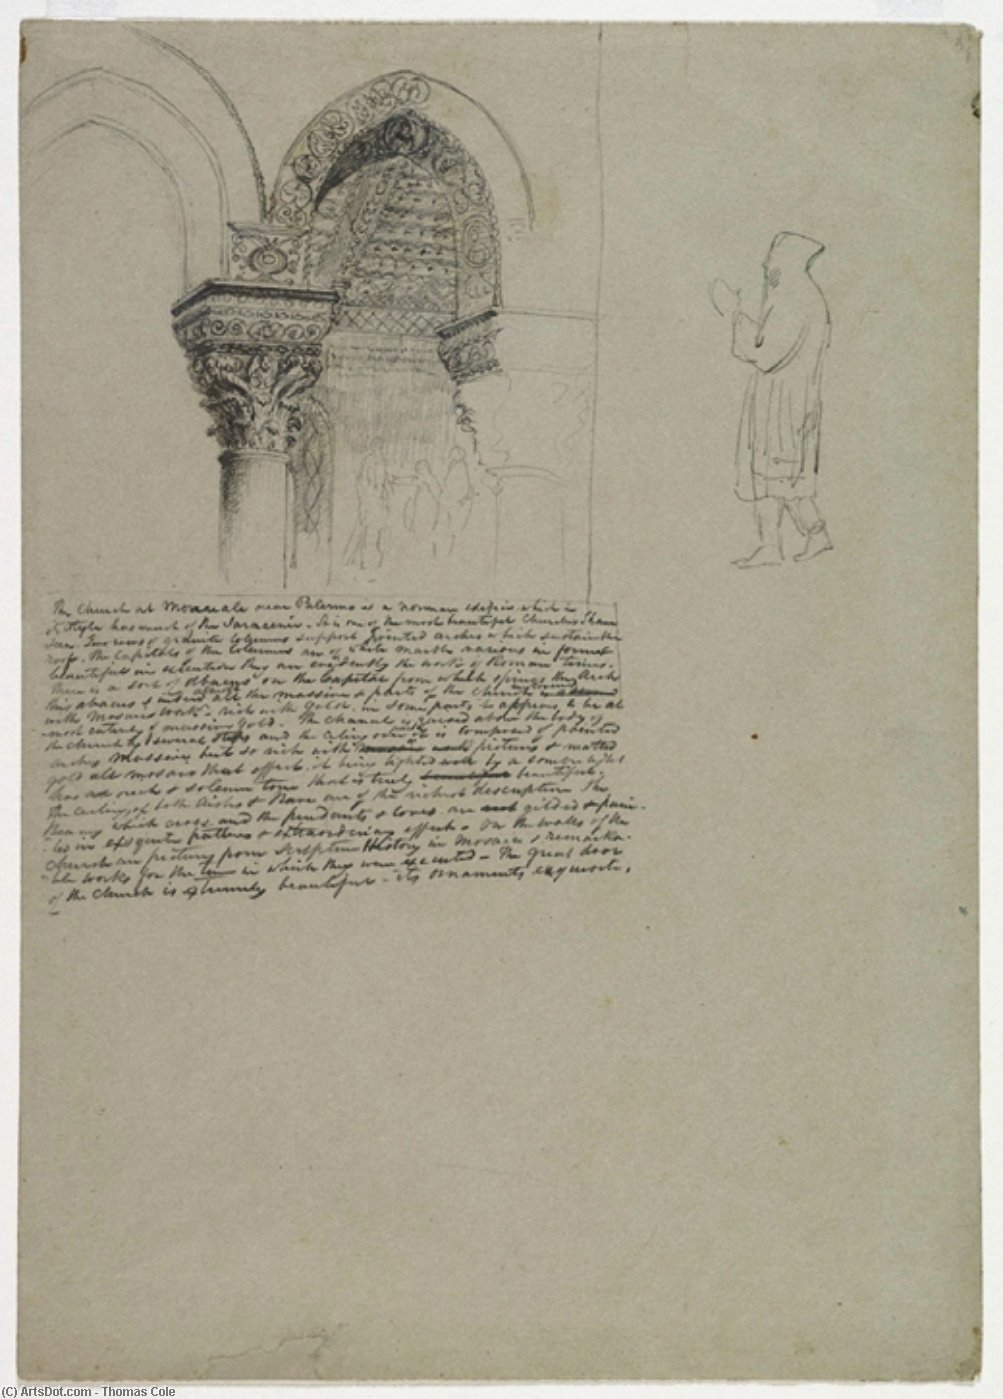 The Church at Monreale near Palermo is a norman edifice which in
its style has much of the Saracenic. It is one of the most beautiful Churches I have
seen. Four rows of granite Columns support pointed arches which sustain the
roof. The Capitals of the Columns are of white marble various in form &
beautiful in execution they are evidently the work of Roman times.
There is a sort of Abacus on the Capital from which springs the Arch
this abacus & indeed almost all the massive parts of the Church
with Mosaic work rich with gold. in some parts it appears to be al
most entirely of massive gold. The Chancel is raised above the body of
the Church by several steps and the Ceiling over it is composed of pointed
arches Massive but so rich with pictures & matted
gold all mosaic that effect, it being lighted by a sombre light
has a rich & solemn tone that is truly beautiful.
The Ceilings of both Aisles & Nave are of the richest description The
Beams which cross and the pendants & coves are gilded & pain-
-ted in exquisite patterns & extraordinary effect. On the walls of the
Church are pictures from Scripture History in Mosaic & remarka-
-ble works for the time in which they were executed - The great door
of the Church is extremely beautiful - its ornaments exquisite.
(C) ArtsDot.com - Thomas Cole